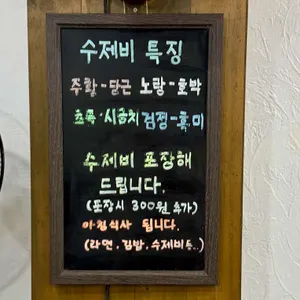 수제비 특징
주황-당근 노랑-호박
초록·시금치 검정-흑미
수제비 포장해
드립니다.
(포장시 300원 추가)
아침식사 됩니다.
(라면, 김밥, 수제비등..)